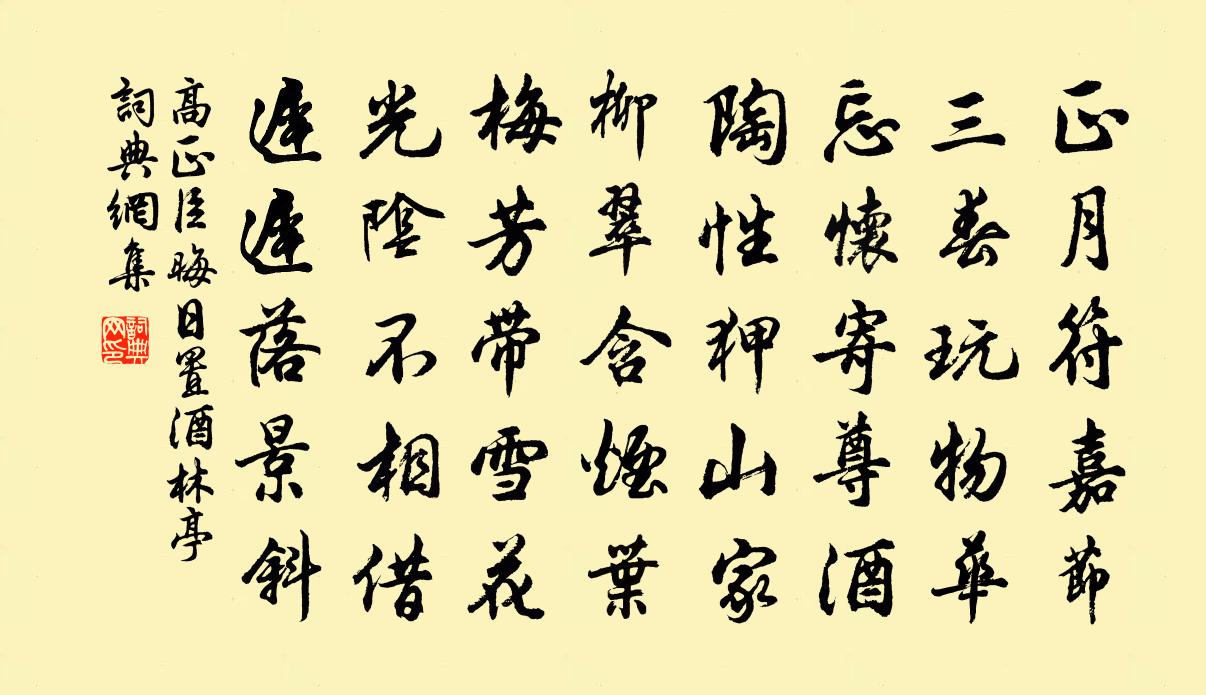 正月符嘉節
三春玩物華
忘懷寄尊酒
陶性狎山家
柳翠含煙葉
梅芳帶雪花
光陰不相借
遲遲落景斜
高正臣晦日置酒林亭
詞典網集
詞典网印